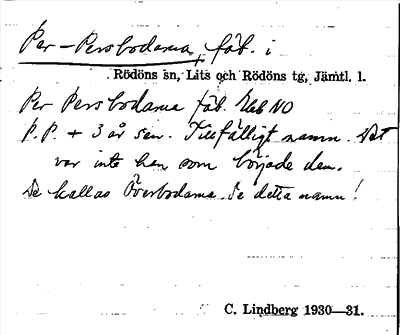 Per-Persbodarna, fäb. i
Rödöns sn, Lits och Rödöns tg, Jämtl. l.
Per Persbodarna fäb. NO
P.P. + 3 år sen. Tillfälligt namn. Det
var inte han som började dem.
De kallas Överbodarna. Se detta namn!
C. Lindberg 1930—31.